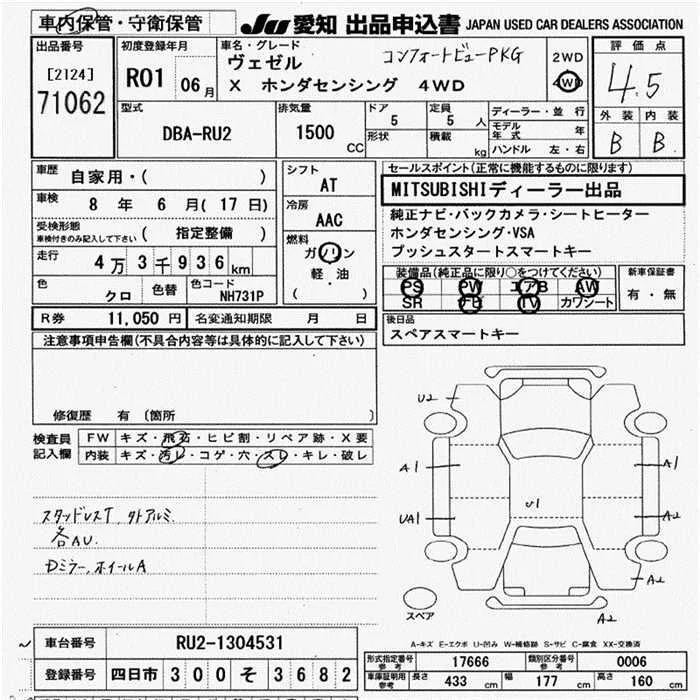 車内保管・守衛保管
JU 愛知 出品申込書 JAPAN USED CAR DEALERS ASSOCIATION
出品番号
[2124]
71062
初度登録年月
R01 06月
車名・グレード
コンフォートビューPKG
ヴェゼル
X ホンダセンシング 4WD
2WD
4WD
評価点
4.5
外装 内装
B B
型式
DBA-RU2
排気量
1500 cc
ドア
5
形状
定員
5 人
積載
kg
ディーラー・並行
モデル年式 年
ハンドル 左・右
車歴
自家用・( )
車検 8 年 6 月( 17 日)
受検形態
車検付きのみ記入して下さい ( 指定整備 )
走行 4万3千936km
色
クロ
色替
色コード
NH731P
シフト
AT
冷房
AAC
燃料
ガソリン
軽・油
( )
R券 11,050 円 名変通知期限 月 日
セールスポイント(正常に機能するものに限ります)
MITSUBISHIディーラー出品
純正ナビ・バックカメラ・シートヒーター
ホンダセンシング・VSA
プッシュスタートスマートキー
装備品(純正品に限り○をつけてください)
PS PW エアB AW
SR ナビ TV カワシート
新車保証書
有・無
後日品
スペアスマートキー
注意事項申告欄(不具合内容等は具体的に記入して下さい)
修復歴 有 〔箇所 〕
検査員記入欄
FW キズ・飛石・ヒビ割・リペア跡・X要
内装 キズ・汚レ・コゲ・穴・スレ・キレ・破レ
スタッドレスT,タトアルミ.
各AU.
Dミラー,ホイールA
U2
A1
A1
UA1
U1
A2
A2
A2
スペア
A-キズ E-エクボ U-凹み W-補修跡 S-サビ C-腐食 XX-交換済
車台番号 RU2-1304531
登録番号 四日市 300 そ 3682
形式指定番号 参考 17666 類別区分番号 参考 0006
車庫証明用 参考 長さ 433 cm 幅 177 cm 高さ 160 cm